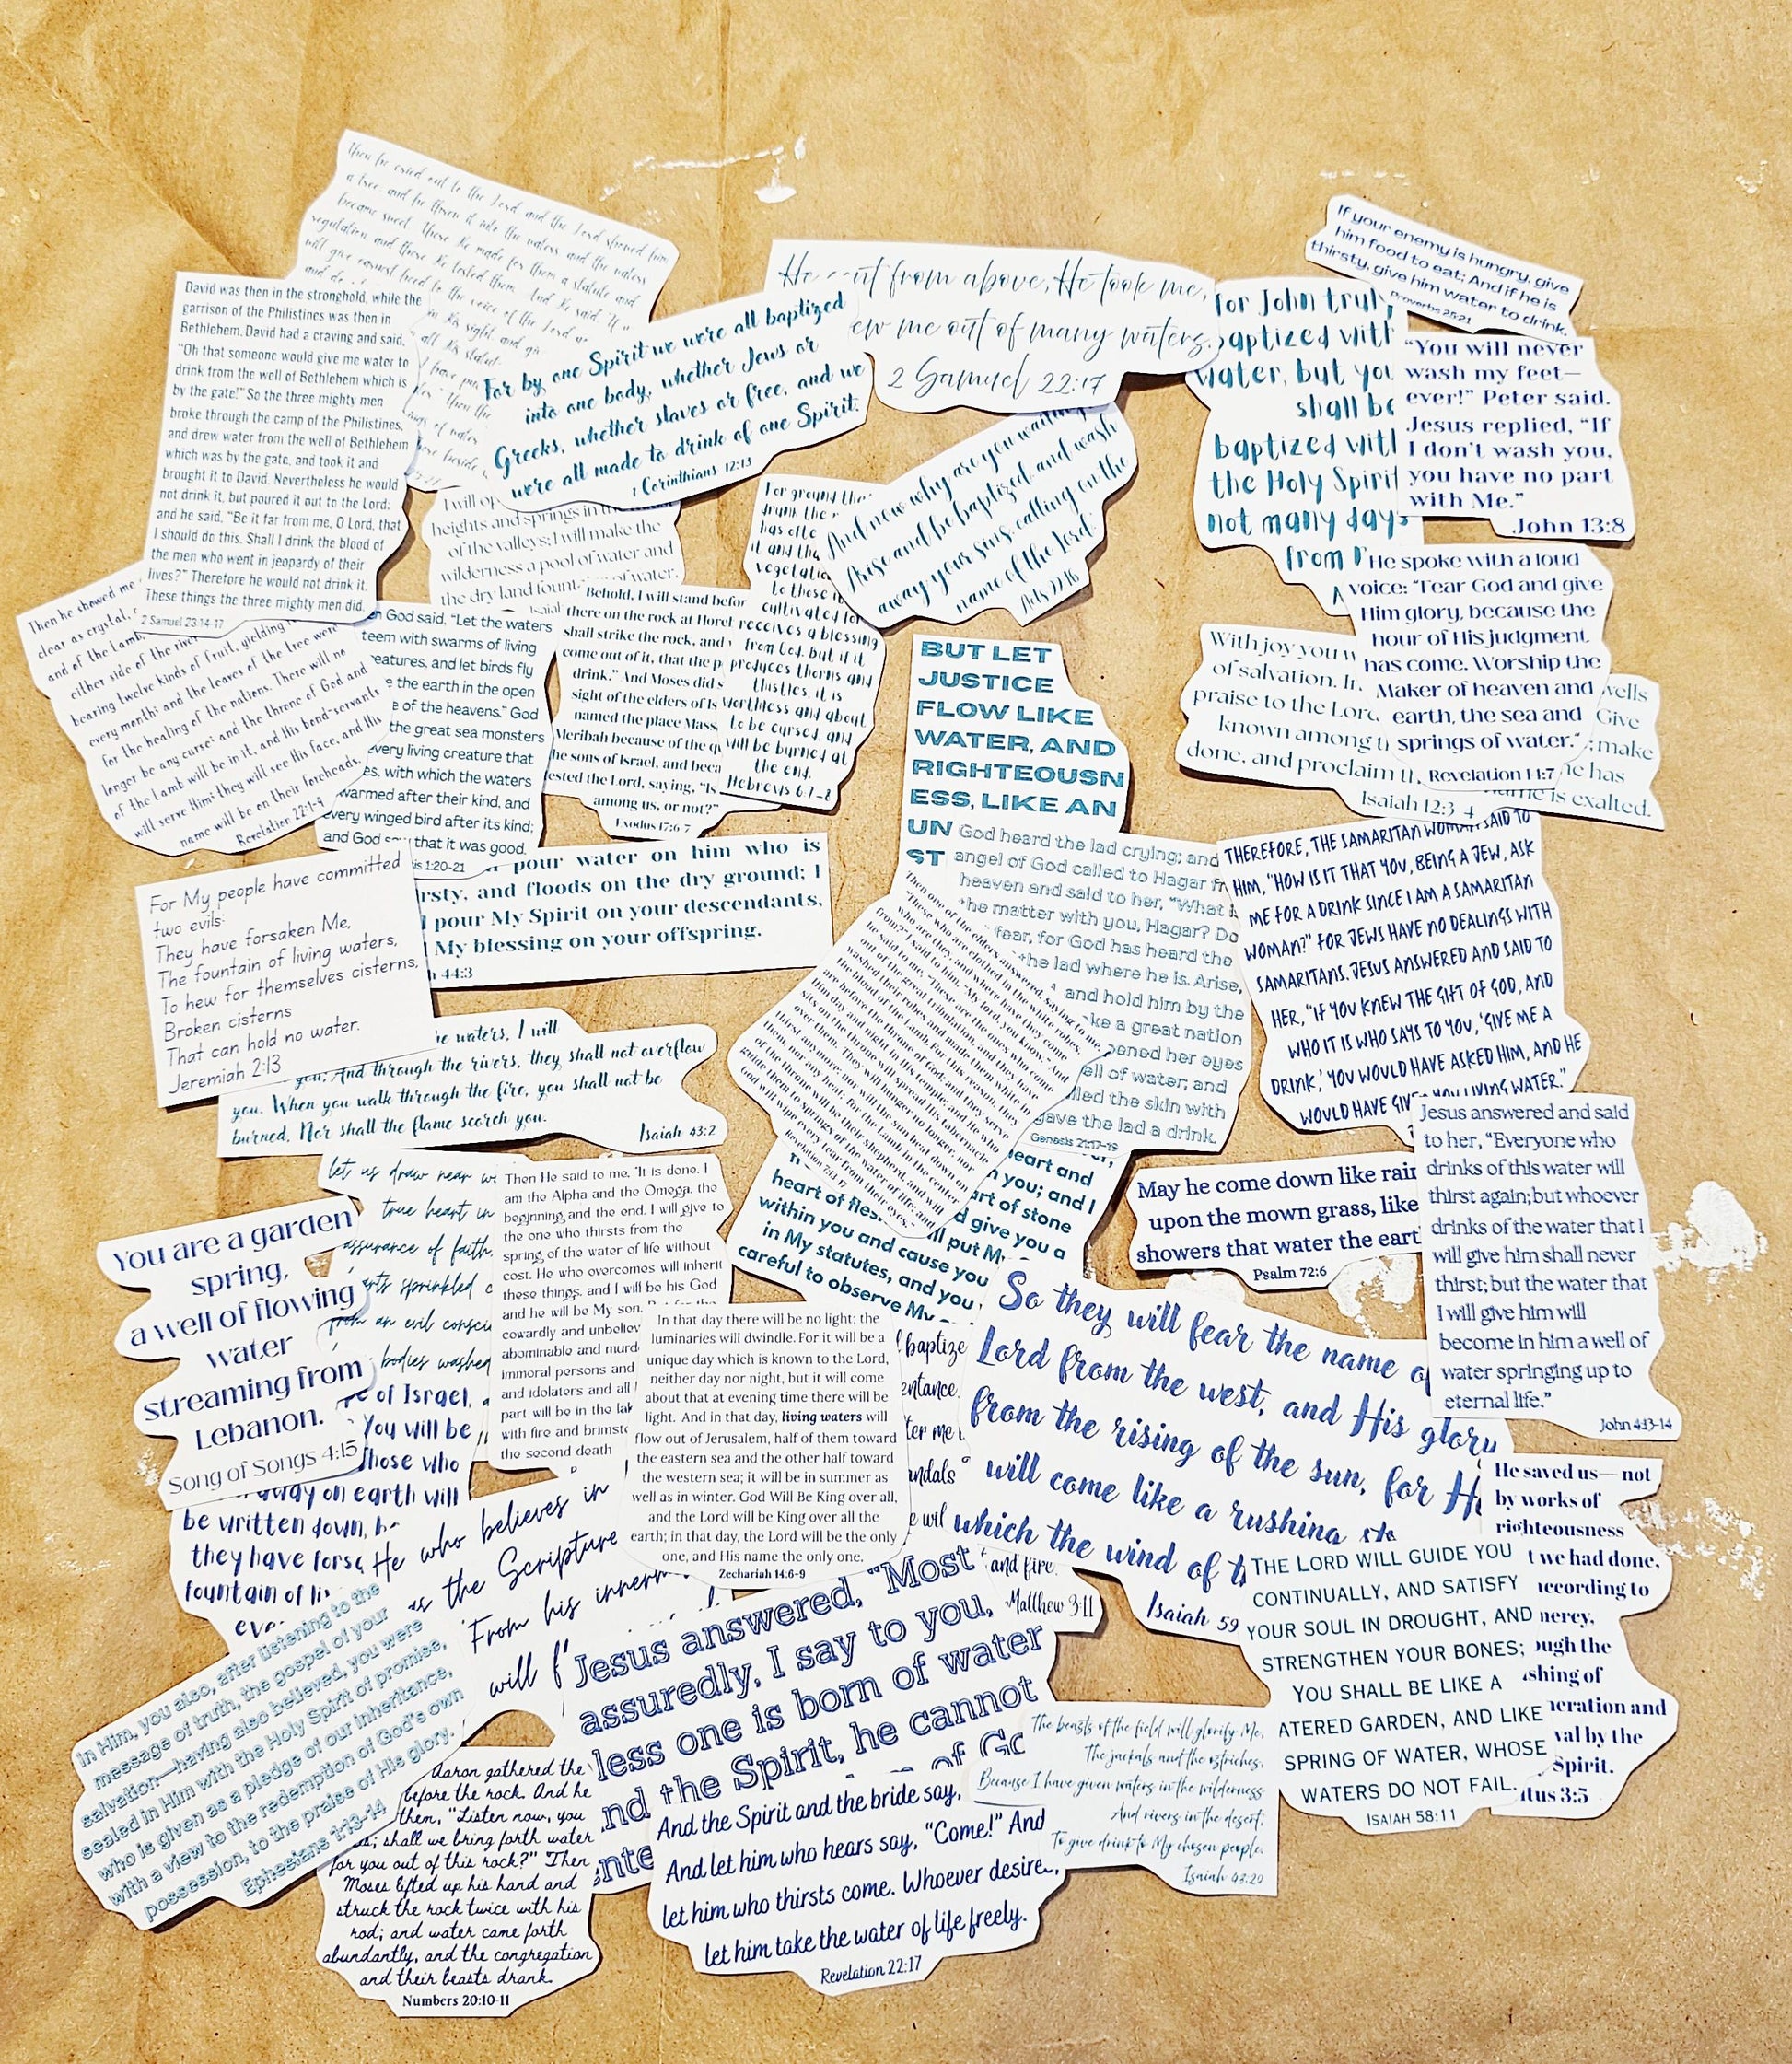 Then he cried out to the Lord, and the Lord showed him
a tree, and he threw it into the waters, and the waters
became sweet. There He made for them a statute and
regulation, and there He tested them. And He said, "If
will give earnest heed to the voice of the Lord
and do
in His sight, and
all His
David was then in the stronghold, while the
garrison of the Philistines was then in
Bethlehem. David had a craving and said,
"Oh that someone would give me water to
drink from the well of Bethlehem which is
by the gate!" So the three mighty men
broke through the camp of the Philistines,
and drew water from the well of Bethlehem
which was by the gate, and took it and
brought it to David. Nevertheless he would
not drink it, but poured it out to the Lord;
and he said, "Be it far from me, O Lord, that
I should do this. Shall I drink the blood of
the men who went in jeopardy of their
lives?" Therefore he would not drink it.
These things the three mighty men did.
2 Samuel 23:14-17
For by one Spirit we were all baptized
into one body, whether Jews or
Greeks, whether slaves or free, and we
were all made to drink of one Spirit.
1 Corinthians 12:13
He from above, He took me,
me out of many waters.
2 Samuel 22:17
for John truly
baptized with
water, but you
shall be
baptized with
the Holy Spirit
not many days
from
If your enemy is hungry, give
him food to eat; And if he is
thirsty, give him water to drink.
Proverbs 25:21
"You will never
wash my feet—
ever!" Peter said.
Jesus replied, "If
I don't wash you,
you have no part
with Me."
John 13:8
I will
heights and springs in
of the valleys; I will make the
wilderness a pool of water and
the dry land of water.
For ground
And now why are you waiting?
Arise and be baptized, and wash
away your sins, calling on the
name of the Lord.'
Acts 22:16
He spoke with a loud
voice: "Fear God and give
Him glory, because the
hour of His judgment
has come. Worship the
Maker of heaven and
earth, the sea and
springs of water."
Revelation 14:7
With joy you
of salvation. In
praise to the Lord,
known among
done, and proclaim
wells
Give
make
he has
name is exalted.
Isaiah 12:3-4
Then he showed me
clear as crystal,
and of the Lamb,
either side of the river
bearing twelve kinds of fruit, yielding
every month; and the leaves of the tree were
for the healing of the nations. There will no
longer be any curse; and the throne of God and
of the Lamb will be in it, and His bond-servants
will serve Him; they will see His face, and His
name will be on their foreheads.
Revelation 22:1-4
God said, "Let the waters
teem with swarms of living
creatures, and let birds fly
the earth in the open
of the heavens." God
the great sea monsters
every living creature that
with which the waters
swarmed after their kind, and
every winged bird after its kind;
and God that it was good.
1:20-21
Behold, I will stand
there on the rock at Horeb
shall strike the rock, and
come out of it, that the
drink." And Moses did
sight of the elders of
named the place
Meribah because of the
the sons of Israel, and
tested the Lord, saying, "Is
among us, or not?"
Exodus 17:6-7
vegetation
to those
cultivated for
receives a blessing
from God, but if it
produces thorns and
thistles, it is
worthless and about
to be cursed, and
will be burned at
the end.
Hebrews 6:7-8
BUT LET
JUSTICE
FLOW LIKE
WATER, AND
RIGHTEOUSN
ESS, LIKE AN
UN
ST
God heard the lad crying; and
angel of God called to Hagar
heaven and said to her, "What
the matter with you, Hagar? Do
fear, for God has heard the
the lad where he is. Arise,
and hold him by the
a great nation
opened her eyes
well of water; and
filled the skin with
gave the lad a drink.
Genesis 21:17-19
THEREFORE, THE SAMARITAN WOMAN SAID TO
HIM, "HOW IS IT THAT YOU, BEING A JEW, ASK
ME FOR A DRINK SINCE I AM A SAMARITAN
WOMAN?" FOR JEWS HAVE NO DEALINGS WITH
SAMARITANS. JESUS ANSWERED AND SAID TO
HER, "IF YOU KNEW THE GIFT OF GOD, AND
WHO IT IS WHO SAYS TO YOU, 'GIVE ME A
DRINK,' YOU WOULD HAVE ASKED HIM, AND HE
WOULD HAVE GIVEN YOU LIVING WATER."
pour water on him who is
and floods on the dry ground; I
pour My Spirit on your descendants,
My blessing on your offspring.
44:3
For My people have committed
two evils:
They have forsaken Me,
The fountain of living waters,
To hew for themselves cisterns,
Broken cisterns
That can hold no water.
Jeremiah 2:13
waters, I will
you; And through the rivers, they shall not overflow
you. When you walk through the fire, you shall not be
burned, Nor shall the flame scorch you.
Isaiah 43:2
Then one of the elders answered, saying to me,
"These who are clothed in the white robes,
who are they, and where have they come
from?" I said to him, "My lord, you know." And
he said to me, "These are the ones who come
out of the great tribulation, and they have
washed their robes and made them white in
the blood of the Lamb. For this reason, they
are before the throne of God; and they serve
Him day and night in His temple; and He who
sits on the throne will spread His tabernacle
over them. They will hunger no longer, nor
thirst anymore; nor will the sun beat down on
them, nor any heat; for the Lamb in the center
of the throne will be their shepherd, and will
guide them to springs of the water of life; and
God will wipe every tear from their eyes."
Revelation 7:13-17
heart and
you; and I
heart of stone
heart of flesh give you a
will put My
within you and cause you
in My statutes, and you
careful to observe My
May he come down like rain
upon the mown grass, like
showers that water the earth
Psalm 72:6
Jesus answered and said
to her, "Everyone who
drinks of this water will
thirst again; but whoever
drinks of the water that I
will give him shall never
thirst; but the water that
I will give him will
become in him a well of
water springing up to
eternal life."
John 4:13-14
let us draw near
true heart in
assurance of faith,
sprinkled
from an evil
bodies washed
Then He said to me, "It is done. I
am the Alpha and the Omega, the
beginning and the end. I will give to
the one who thirsts from the
spring of the water of life without
cost. He who overcomes will inherit
these things, and I will be his God
and he will be My son.
cowardly and
abominable and
immoral persons and
and idolaters and all
part will be in the
with fire and
the second death
You are a garden
spring,
a well of flowing
water
streaming from
Lebanon.
Song of Songs 4:15
of Israel,
You will be
Those who
away on earth will
be written down,
they have
fountain of
In that day there will be no light; the
luminaries will dwindle. For it will be a
unique day which is known to the Lord,
neither day nor night, but it will come
about that at evening time there will be
light. And in that day, living waters will
flow out of Jerusalem, half of them toward
the eastern sea and the other half toward
the western sea; it will be in summer as
well as in winter. God Will Be King over all,
and the Lord will be King over all the
earth; in that day, the Lord will be the only
one, and His name the only one.
Zechariah 14:6-9
baptize
me
and fire.
Matthew 3:11
So they will fear the name of
Lord from the west, and His glory
from the rising of the sun, for He
will come like a rushing
which the wind of
Isaiah 59
He saved us—not
by works of
righteousness
we had done,
according to
mercy,
through the
washing of
regeneration and
by the
Spirit.
Titus 3:5
THE LORD WILL GUIDE YOU
CONTINUALLY, AND SATISFY
YOUR SOUL IN DROUGHT, AND
STRENGTHEN YOUR BONES;
YOU SHALL BE LIKE A
ATERED GARDEN, AND LIKE
SPRING OF WATER, WHOSE
WATERS DO NOT FAIL.
ISAIAH 58:11
He who believes in
as the Scripture
'From his
will
Jesus answered, "Most
assuredly, I say to you,
less one is born of water
nd the Spirit, he cannot
of
In Him, you also, after listening to the
message of truth, the gospel of your
salvation—having also believed, you were
sealed in Him with the Holy Spirit of promise,
who is given as a pledge of our inheritance,
with a view to the redemption of God's own
possession, to the praise of His glory.
Ephesians 1:13-14
Aaron gathered the
before the rock. And he
them, "Listen now, you
shall we bring forth water
for you out of this rock?" Then
Moses lifted up his hand and
struck the rock twice with his
rod; and water came forth
abundantly, and the congregation
and their beasts drank.
Numbers 20:10-11
And the Spirit and the bride say,
"Come!" And
And let him who hears say,
let him who thirsts come. Whoever desires,
let him take the water of life freely.
Revelation 22:17
The beasts of the field will glorify Me,
The jackals and the ostriches,
Because I have given waters in the wilderness
And rivers in the desert,
To give drink to My chosen people.
Isaiah 43:20